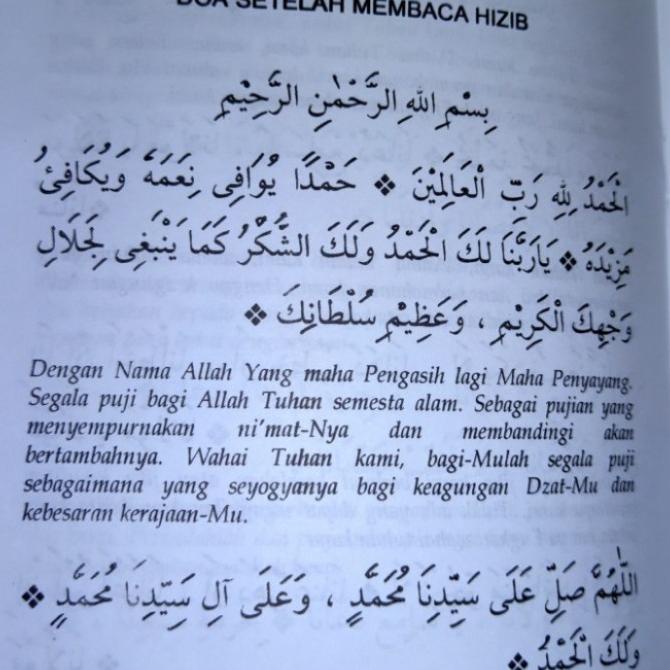 DOA SETELAH MEMBACA HIZIB
بِسْمِ اللهِ الرَّحْمٰنِ الرَّحِيْمِ
اَلْحَمْدُ لِلهِ رَبِّ الْعَالَمِيْنَ ❖ حَمْدًا يُوَافِى نِعَمَهُ وَيُكَافِئُ
مَزِيْدَهُ ❖ يَارَبَّنَا لَكَ الْحَمْدُ وَلَكَ الشُّكْرُ كَمَا يَنْبَغِى لِجَلَالِ
وَجْهِكَ الْكَرِيْمِ ، وَعَظِيْمِ سُلْطَانِكَ ❖
Dengan Nama Allah Yang maha Pengasih lagi Maha Penyayang.
Segala puji bagi Allah Tuhan semesta alam. Sebagai pujian yang
menyempurnakan ni'mat-Nya dan membandingi akan
bertambahnya. Wahai Tuhan kami, bagi-Mulah segala puji
sebagaimana yang seyogyanya bagi keagungan Dzat-Mu dan
kebesaran kerajaan-Mu.
اَللّٰهُمَّ صَلِّ عَلَى سَيِّدِنَا مُحَمَّدٍ ، وَعَلَى آلِ سَيِّدِنَا مُحَمَّدٍ ❖
وَلَكَ الْحَمْدُ ❖